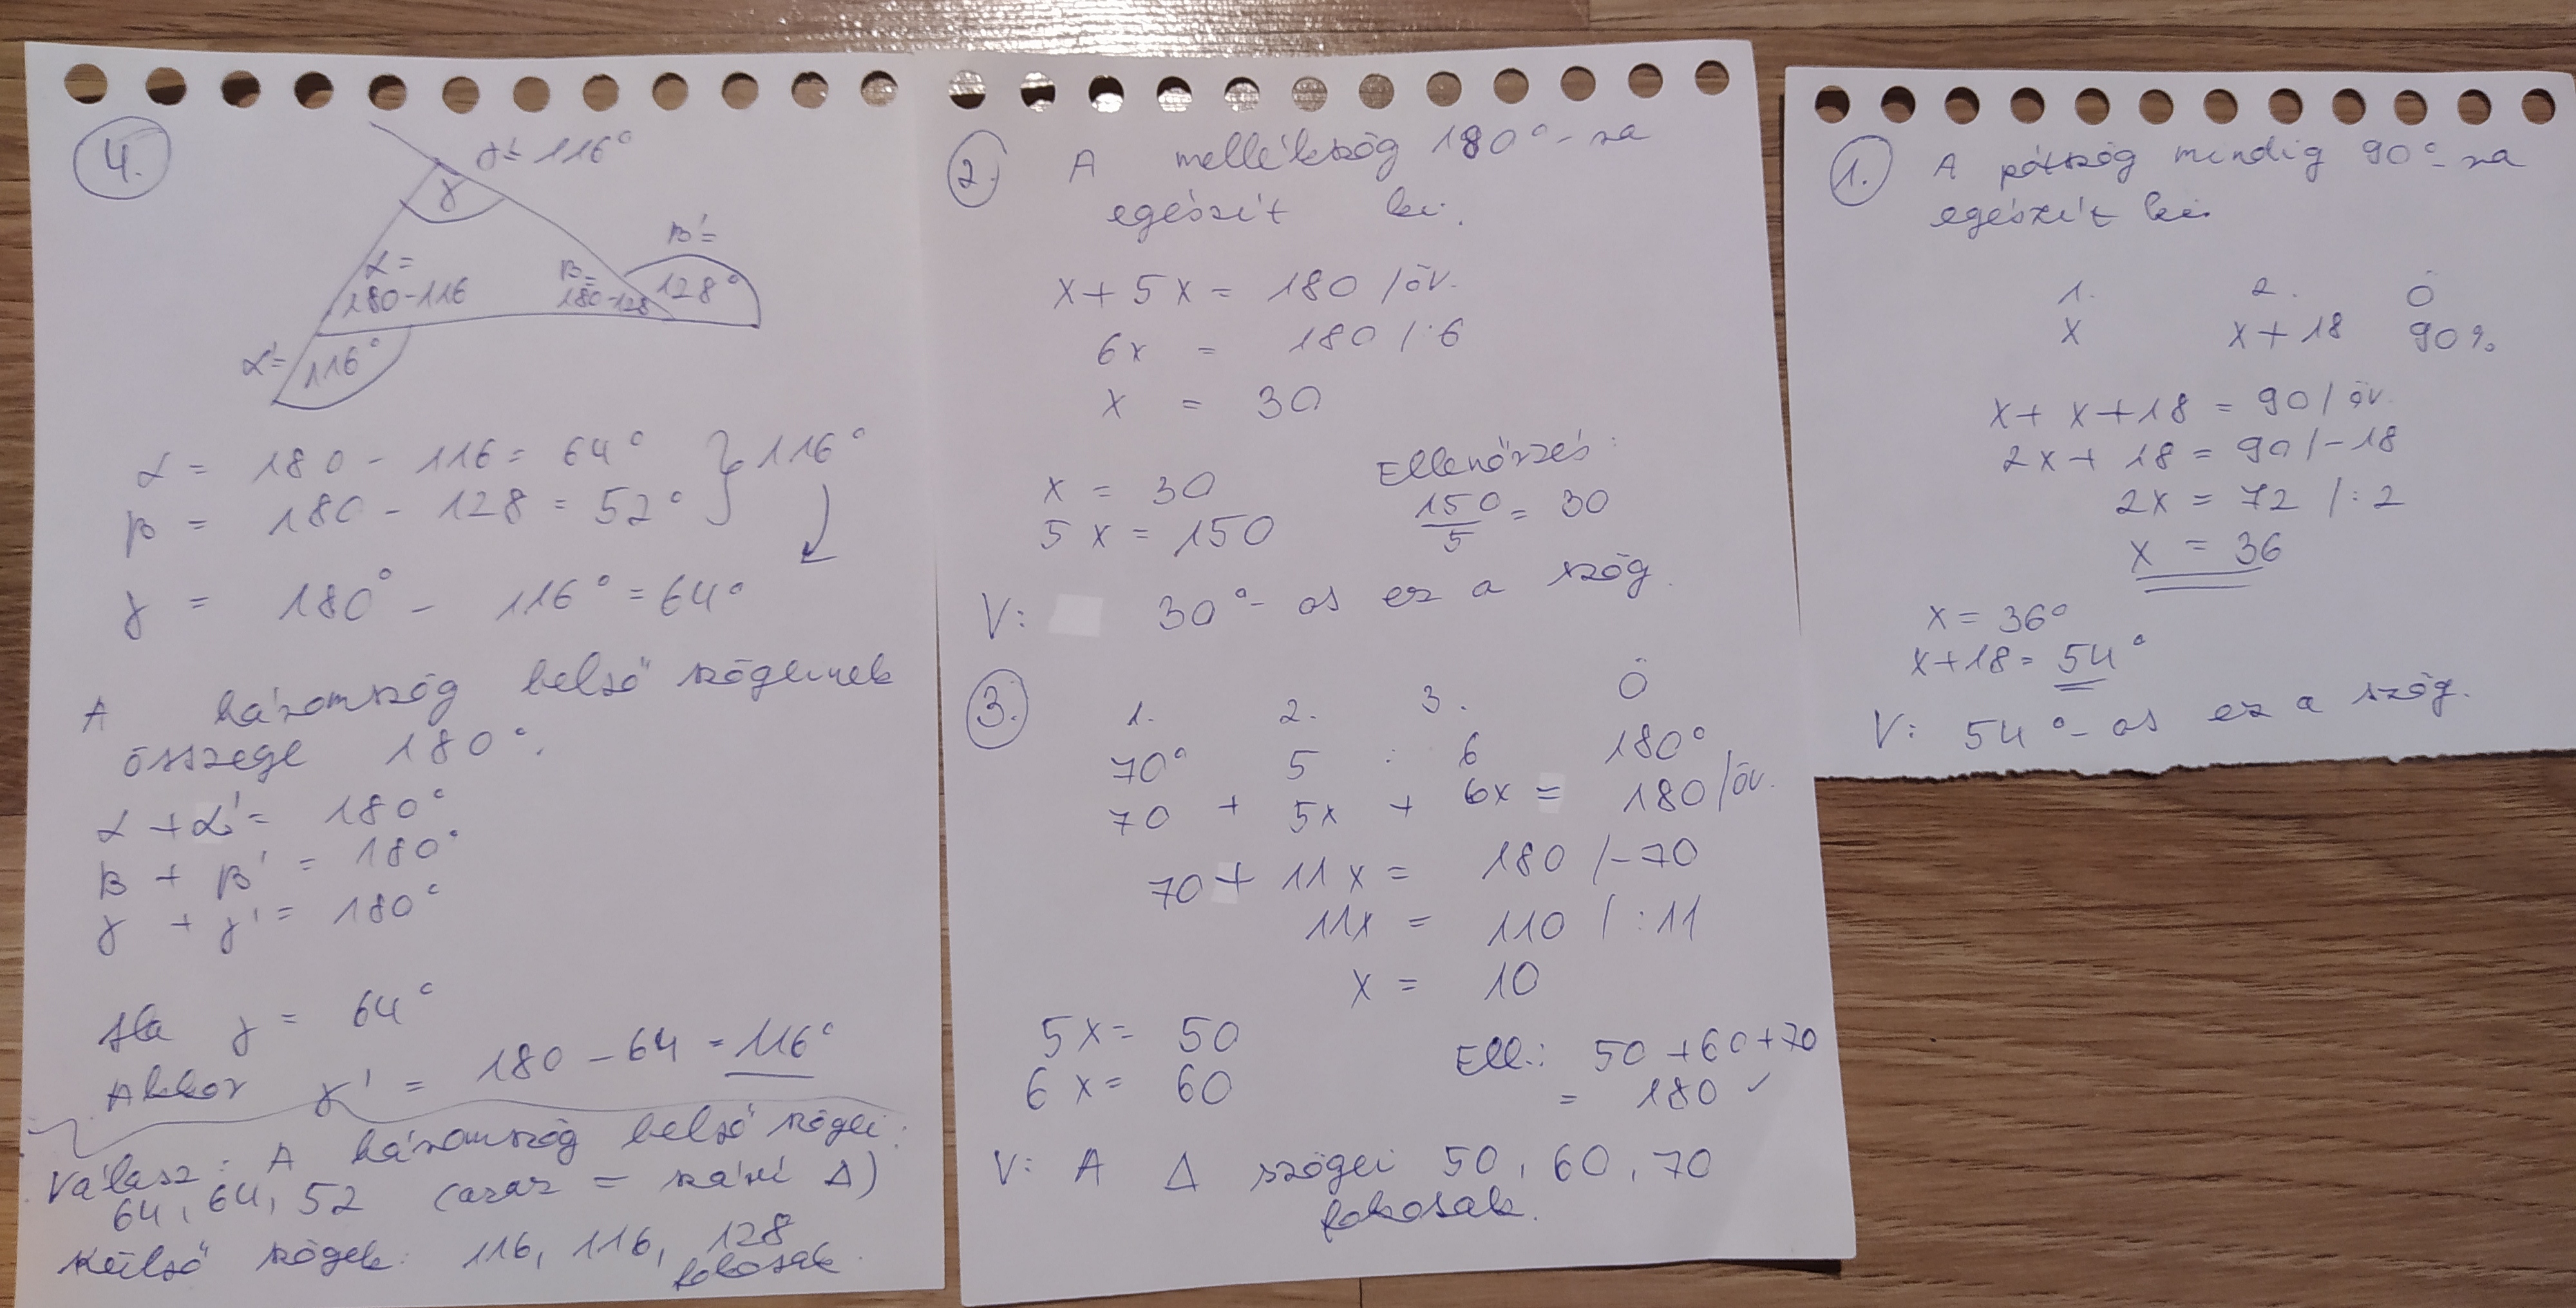 4.
γ'= 116°
γ
α=
180-116
β=
180-128
β'=
128°
α'=
116°
α = 180 - 116 = 64° } 116°
β = 180 - 128 = 52°
γ = 180° - 116° = 64°
A háromszög belső szögeinek
összege 180°.
α + α' = 180°
β + β' = 180°
γ + γ' = 180°
Ha γ = 64°
Akkor γ' = 180 - 64 = 116°
Válasz: A háromszög belső szögei:
64, 64, 52 (azaz = szárú Δ)
Külső szögek: 116, 116, 128
fokosak.
2. A mellékszög 180°-ra
egészít ki.
x + 5x = 180 /öv.
6x = 180 /:6
x = 30
x = 30
5x = 150
Ellenőrzés:
150/5 = 30
V: 30°-os ez a szög.
3. 1. 2. 3. Ö
70° 5 : 6 180°
70 + 5x + 6x = 180 /öv.
70 + 11x = 180 /-70
11x = 110 /:11
x = 10
5x = 50
6x = 60
Ell.: 50+60+70
= 180 ✓
V: A Δ szögei 50, 60, 70
fokosak.
1. A pótszög mindig 90°-ra
egészít ki.
1. 2. Ö
x x+18 90°
x + x + 18 = 90 /öv.
2x + 18 = 90 /-18
2x = 72 /:2
x = 36
x = 36°
x+18 = 54°
V: 54°-os ez a szög.